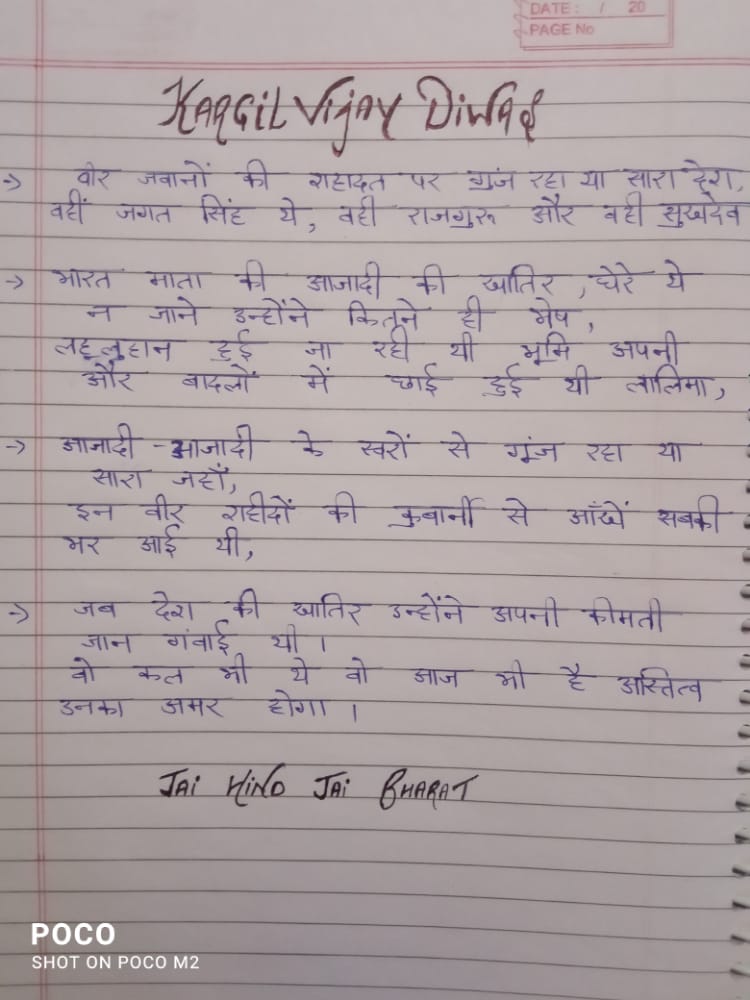 DATE : / 20
PAGE No
KARGIL VIJAY DIWAS
→ वीर जवानों की शहादत पर गूंज रहा था सारा देश,
वहीं जगत सिंह थे, वही राजगुरू और वही सुखदेव
→ भारत माता की आजादी की खातिर, घेरे थे
न जाने उन्होंने कितने ही भेष,
लहू लुहान हुई जा रही थी भूमि अपनी
और बादलों में छाई हुई थी लालिमा,
→ आजादी - आजादी के स्वरों से गूंज रहा था
सारा जहाँ,
इन वीर शहीदों की कुबार्नी से आँखें सबकी
भर आई थी,
→ जब देश की खातिर उन्होंने अपनी कीमती
जान गंवाई थी ।
वो कल भी थे वो आज भी है अस्तित्व
उनका अमर होगा ।
JAI HIND JAI BHARAT
POCO
SHOT ON POCO M2